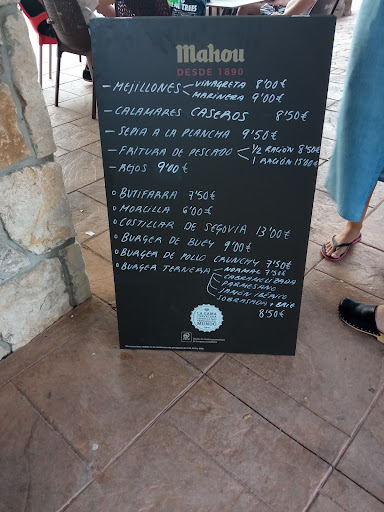 Mahou
DESDE 1890
- MEJILLONES VINAGRETA 8'00€
MARINERA 9'00€
- CALAMARES CASEROS 8'50€
- SEPIA A LA PLANCHA 9'50€
- FRITURA DE PESCADO 1/2 RACIÓN 8'50€
1 RACIÓN 15'00€
- REJOS 9'00€
o BUTIFARRA 7'50€
o MORCILLA 6'00€
o COSTILLAR DE SEGOVIA 13'00€
o BURGER DE BUEY 9'00€
o BURGER DE POLLO CRUNCHY 7'50€
o BURGER TERNERA NORMAL 7'50€
CABRAMELIZADA
PARMESANO
JAMÓN IBÉRICO
SOBRASADA + BRIE
8'50€
LA CAÑA
MUNDO